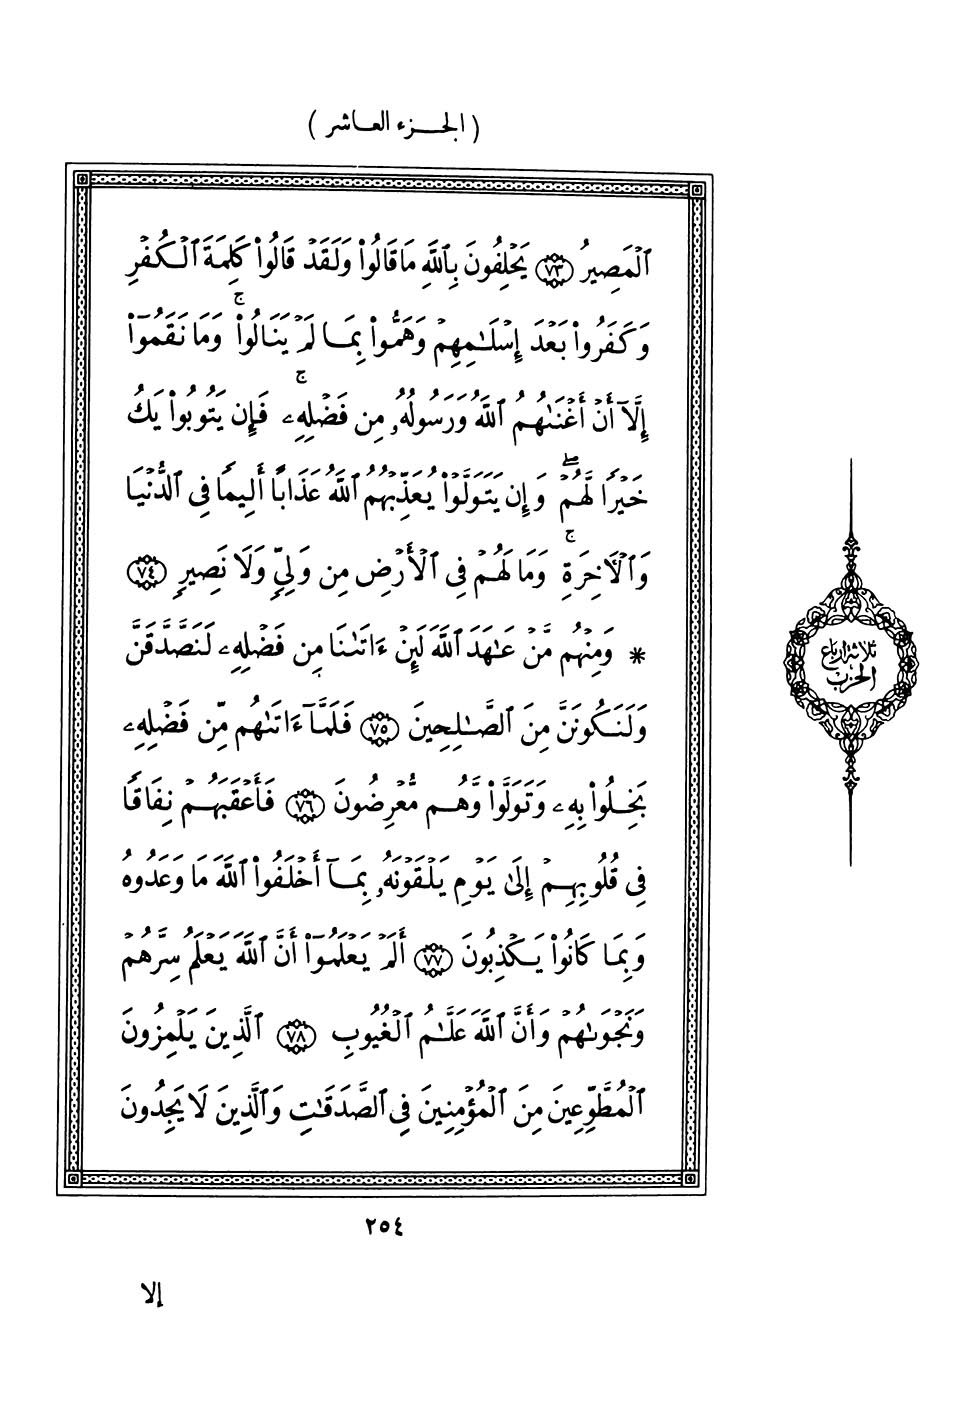 ( الجزء العاشر )
ٱلْمَصِيرُ ٧٣ يَحْلِفُونَ بِٱللَّهِ مَا قَالُوا۟ وَلَقَدْ قَالُوا۟ كَلِمَةَ ٱلْكُفْرِ
وَكَفَرُوا۟ بَعْدَ إِسْلَٰمِهِمْ وَهَمُّوا۟ بِمَا لَمْ يَنَالُوا۟ ۚ وَمَا نَقَمُوٓا۟
إِلَّآ أَنْ أَغْنَىٰهُمُ ٱللَّهُ وَرَسُولُهُۥ مِن فَضْلِهِۦ ۚ فَإِن يَتُوبُوا۟ يَكُ
خَيْرًا لَّهُمْ ۖ وَإِن يَتَوَلَّوْا۟ يُعَذِّبْهُمُ ٱللَّهُ عَذَابًا أَلِيمًا فِى ٱلدُّنْيَا
وَٱلْأَخِرَةِ ۚ وَمَا لَهُمْ فِى ٱلْأَرْضِ مِن وَلِىٍّ وَلَا نَصِيرٍ ٧٤
* وَمِنْهُم مَّنْ عَٰهَدَ ٱللَّهَ لَئِنْ ءَاتَىٰنَا مِن فَضْلِهِۦ لَنَصَّدَّقَنَّ
وَلَنَكُونَنَّ مِنَ ٱلصَّٰلِحِينَ ٧٥ فَلَمَّآ ءَاتَىٰهُم مِّن فَضْلِهِۦ
بَخِلُوا۟ بِهِۦ وَتَوَلَّوا۟ وَّهُم مُّعْرِضُونَ ٧٦ فَأَعْقَبَهُمْ نِفَاقًا
فِى قُلُوبِهِمْ إِلَىٰ يَوْمِ يَلْقَوْنَهُۥ بِمَآ أَخْلَفُوا۟ ٱللَّهَ مَا وَعَدُوهُ
وَبِمَا كَانُوا۟ يَكْذِبُونَ ٧٧ أَلَمْ يَعْلَمُوٓا۟ أَنَّ ٱللَّهَ يَعْلَمُ سِرَّهُمْ
وَنَجْوَىٰهُمْ وَأَنَّ ٱللَّهَ عَلَّٰمُ ٱلْغُيُوبِ ٧٨ ٱلَّذِينَ يَلْمِزُونَ
ٱلْمُطَّوِّعِينَ مِنَ ٱلْمُؤْمِنِينَ فِى ٱلصَّدَقَٰتِ وَٱلَّذِينَ لَا يَجِدُونَ
ثلاثة ارباع
الحزب
٢٥٤
إلا